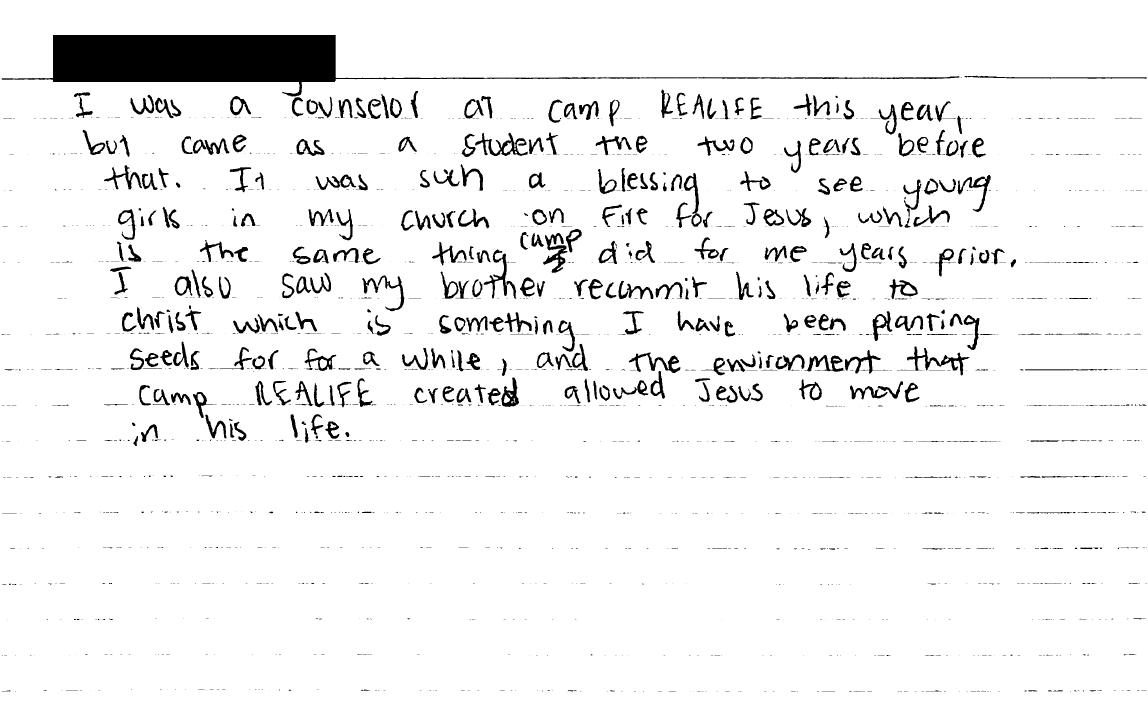 I was a counselor at camp REALIFE this year,
but came as a student the two years before
that. It was such a blessing to see young
girls in my church on fire for Jesus, which
is the same thing camp did for me years prior.
I also saw my brother recommit his life to
christ which is something I have been planting
seeds for for a while, and the environment that
camp REALIFE created allowed Jesus to move
in his life.